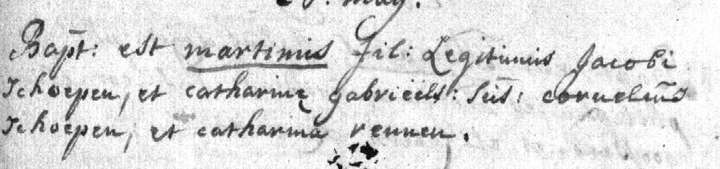 may.
Bapt: est martinus fil: Legitimus Jacobi
schoepen, et catharinę gabriëels: sus: cornelius
schoepen, et catharina rennen.